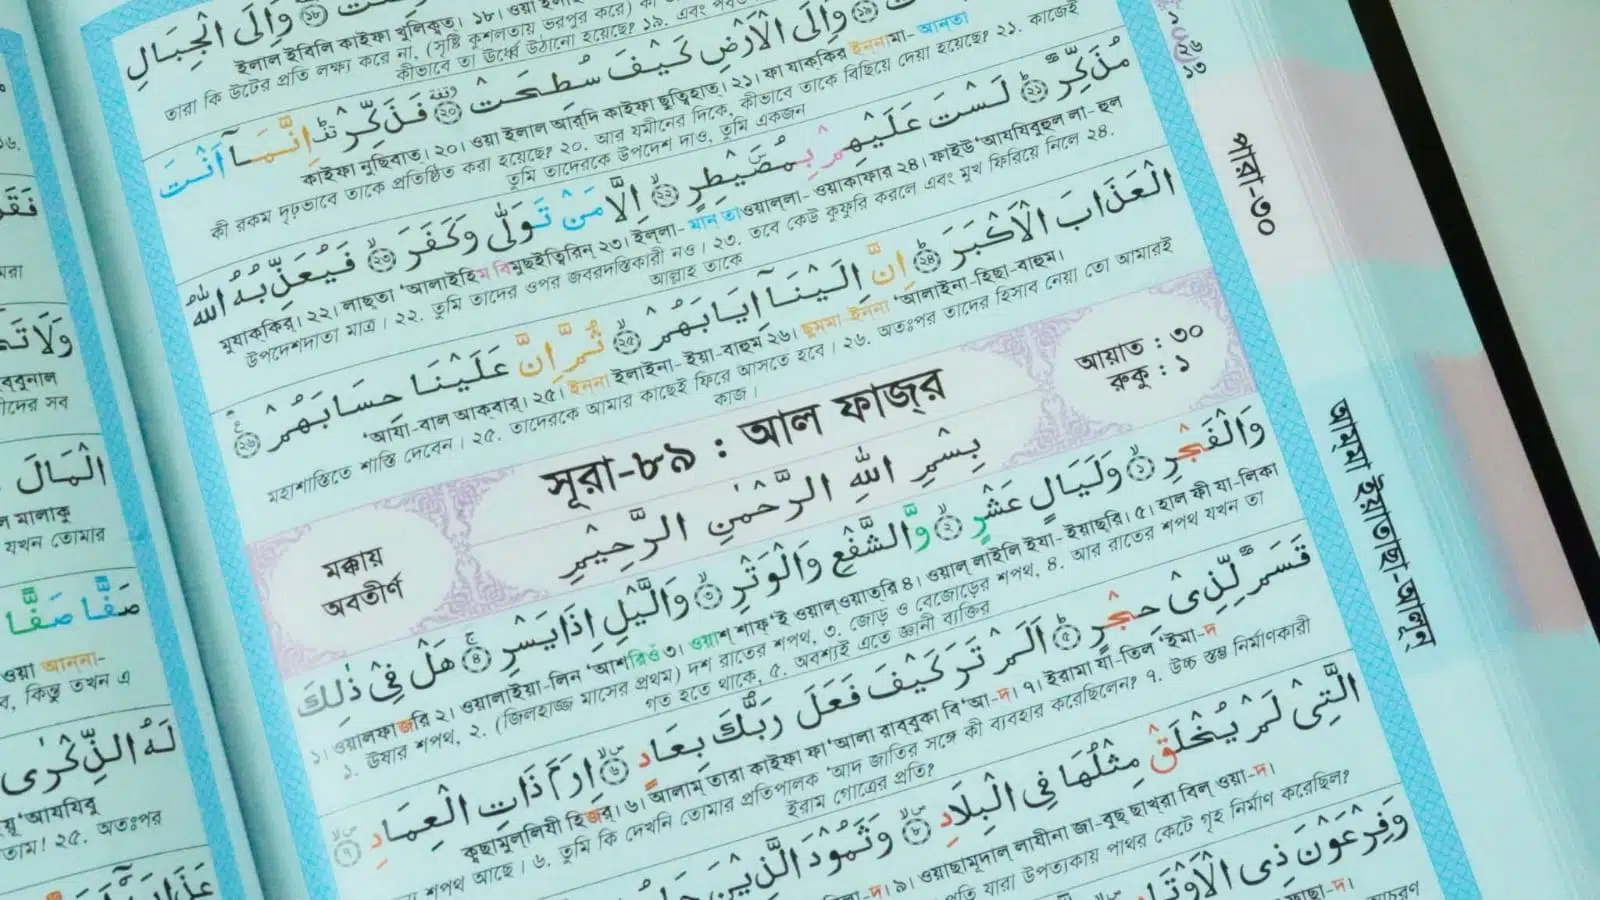 وَاِلَى الْجِبَالِ
ইলাল ইবিলি কাইফা খুলিক্বত্। ১৮। ওয়া
তারা কি উটের প্রতি লক্ষ্য করে না, (সৃষ্টি কুশলতায় ভরপুর করে)
কীভাবে তা ঊর্ধ্বে উঠানো হয়েছে? ১৯. এবং
وَاِلَى الْاَرْضِ كَيْفَ سُطِحَتْ ۟ فَذَكِّرْ اِنَّمَاۤ اَنْتَ
কাইফা নুছিবাত্। ২০। ওয়া ইলাল আরদি কাইফা ছুত্বিহাত্। ২১। ফা যাক্কির ইন্নামা- আনতা
কী রকম দৃঢ়ভাবে তাকে প্রতিষ্ঠিত করা হয়েছে? ২০. আর যমীনের দিকে, কীভাবে তাকে বিছিয়ে দেয়া হয়েছে? ২১. কাজেই
তুমি তাদেরকে উপদেশ দাও, তুমি একজন
مُذَكِّرٌ ۟ لَسْتَ عَلَيْهِمْ بِمُصَۜيْطِرٍ ۟ اِلَّا مَنْ تَوَلّٰى وَكَفَرَ ۟ فَيُعَذِّبُهُ اللّٰهُ
মুযাক্কির্। ২২। লাছতা 'আলাইহিম বিমুছইত্বিরিন ২৩। ইল্লা- মান তাওয়াল্লা- ওয়াকাফার ২৪। ফাইউ'আযযিবুহুল লা- হুল
উপদেশদাতা মাত্র। ২২. তুমি তাদের ওপর জবরদস্তিকারী নও। ২৩. তবে কেউ কুফুরি করলে এবং মুখ ফিরিয়ে নিলে ২৪.
আল্লাহ তাকে
الْعَذَابَ الْاَكْبَرَ ۟ اِنَّ اِلَيْنَاۤ اِيَابَهُمْ ۟ ثُمَّ اِنَّ عَلَيْنَا حِسَابَهُمْ ۟
'আযা-বাল আক্বার্। ২৫। ইন্না ইলাইনা- ইয়া-বাহুম ২৬। ছুম্মা ইন্না 'আলাইনা-হিছা-বাহুম।
মহাশাস্তিতে শাস্তি দেবেন। ২৫. তাদেরকে আমার কাছেই ফিরে আসতে হবে। ২৬. অতঃপর তাদের হিসাব নেয়া তো আমারই
কাজ।
সূরা-৮৯ : আল ফাজ্‌র
আয়াত : ৩০
রুকু : ১
মক্কায়
অবতীর্ণ
بِسْمِ اللّٰهِ الرَّحْمٰنِ الرَّحِيْمِ
وَالْفَجْرِ ۟ وَلَيَالٍ عَشْرٍ ۟ وَّالشَّفْعِ وَالْوَتْرِ ۟ وَالَّيْلِ اِذَا يَسْرِ ۟ هَلْ فِيْ ذٰلِكَ
১। ওয়ালফাজরি ২। ওয়ালাইয়া-লিন 'আশরিওঁ ৩। ওয়াশ্ শাফ্'ই ওয়াল্ওয়াতরি ৪। ওয়াল্ লাইলি ইযা- ইয়াছ্‌রি। ৫। হাল ফী যা-লিকা
১. ঊষার শপথ, ২. (জিলহাজ্জ মাসের প্রথম) দশ রাতের শপথ, ৩. জোড় ও বেজোড়ের শপথ, ৪. আর রাতের শপথ যখন তা
গত হতে থাকে, ৫. অবশ্যই এতে জ্ঞানী ব্যক্তির
قَسَمٌ لِّذِيْ حِجْرٍ ۟ اَلَمْ تَرَ كَيْفَ فَعَلَ رَبُّكَ بِعَادٍ ۟ اِرَمَ ذَاتِ الْعِمَادِ ۟
ক্বছামুল্লিযী হিজর্। ৬। আলাম্ তারা কাইফা ফা'আলা রাব্বুকা বি'আ-দ। ৭। ইরামা যা-তিল 'ইমা-দ
শপথ আছে। ৬. তুমি কি দেখনি তোমার প্রতিপালক 'আদ জাতির সঙ্গে কী ব্যবহার করেছিলেন? ৭. উচ্চ স্তম্ভ নির্মাণকারী
ইরাম গোত্রের প্রতি?
الَّتِيْ لَمْ يُخْلَقْ مِثْلُهَا فِي الْبِلَادِ ۟ وَثَمُوْدَ الَّذِيْنَ
৯। ওয়াছামূদাল্ লাযীনা জা-বুছ্ ছাখ্‌রা বিল্ ওয়া-দ।
যারা উপত্যকায় পাথর কেটে গৃহ নির্মাণ করেছিল?
وَفِرْعَوْنَ ذِي الْاَوْتَادِ
পারা-৩০
আম্মা ইয়াতাছা-আলূন্
১
২৬
১৩
الْمَالَ
মালাকু
যখন তোমার
صَفًّا صَفًّا
ওয়া আননা-
কিন্তু তখন এ
لَهُ الذِّكْرٰى
২৫. অতঃপর